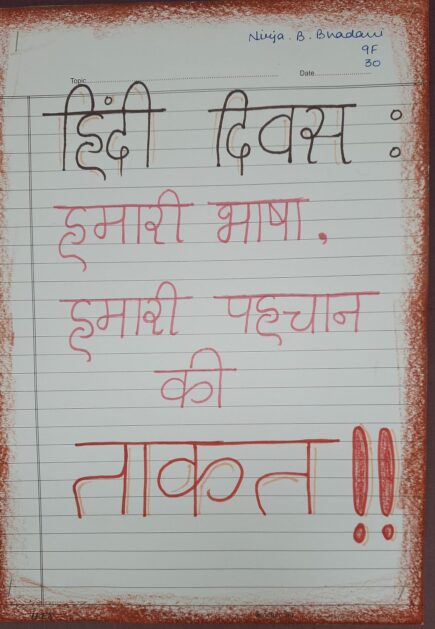 Nirja. B. Bhadani
9F
30
Topic
Date
हिंदी दिवस :
हमारी भाषा,
हमारी पहचान
की
ताकत !!